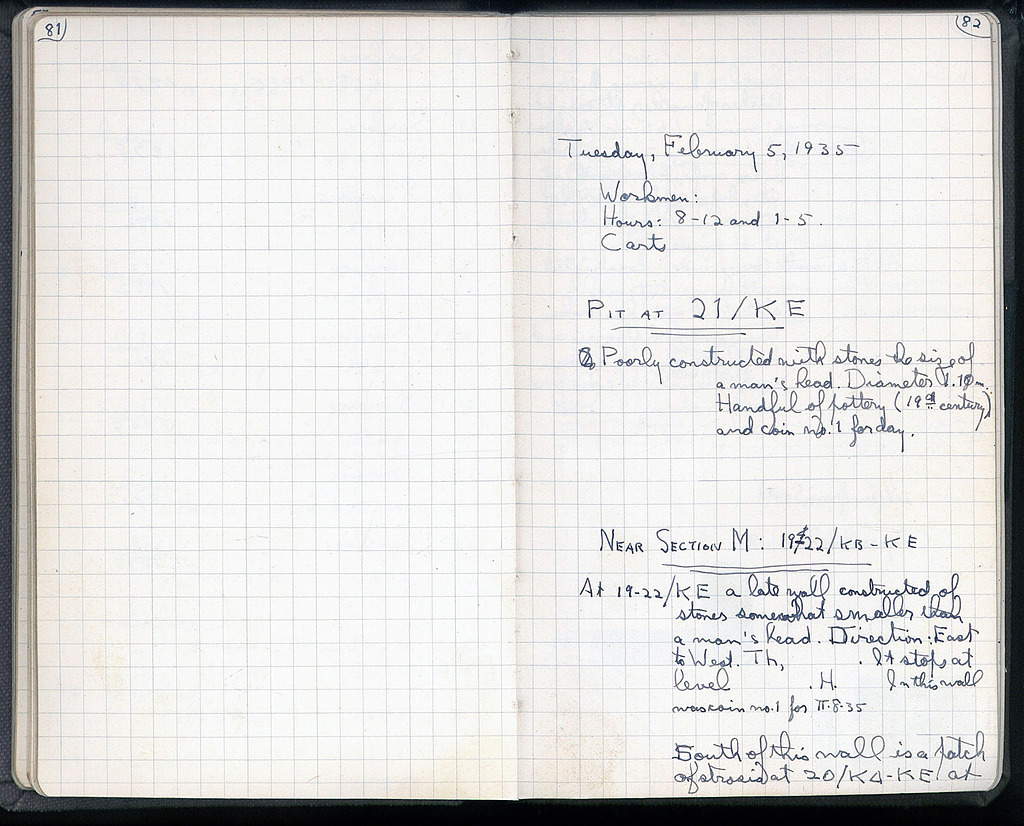 81
82
Tuesday, February 5, 1935
Workmen:
Hours: 8-12 and 1-5.
Carts
PIT AT 21/KE
Poorly constructed with stones the size of
a man's head. Diameter 1.10 m.
Handful of pottery (19th century)
and coin no. 1 for day.
NEAR SECTION M: 19-22/KB-KE
At 19-22/KE a late wall constructed of
stones somewhat smaller than
a man's head. Direction: East
to West. Th, . It stops at
level . H. In this wall
was coin no. 1 for II-8-35
South of this wall is a patch
of strosis at 20/KΔ-KE at